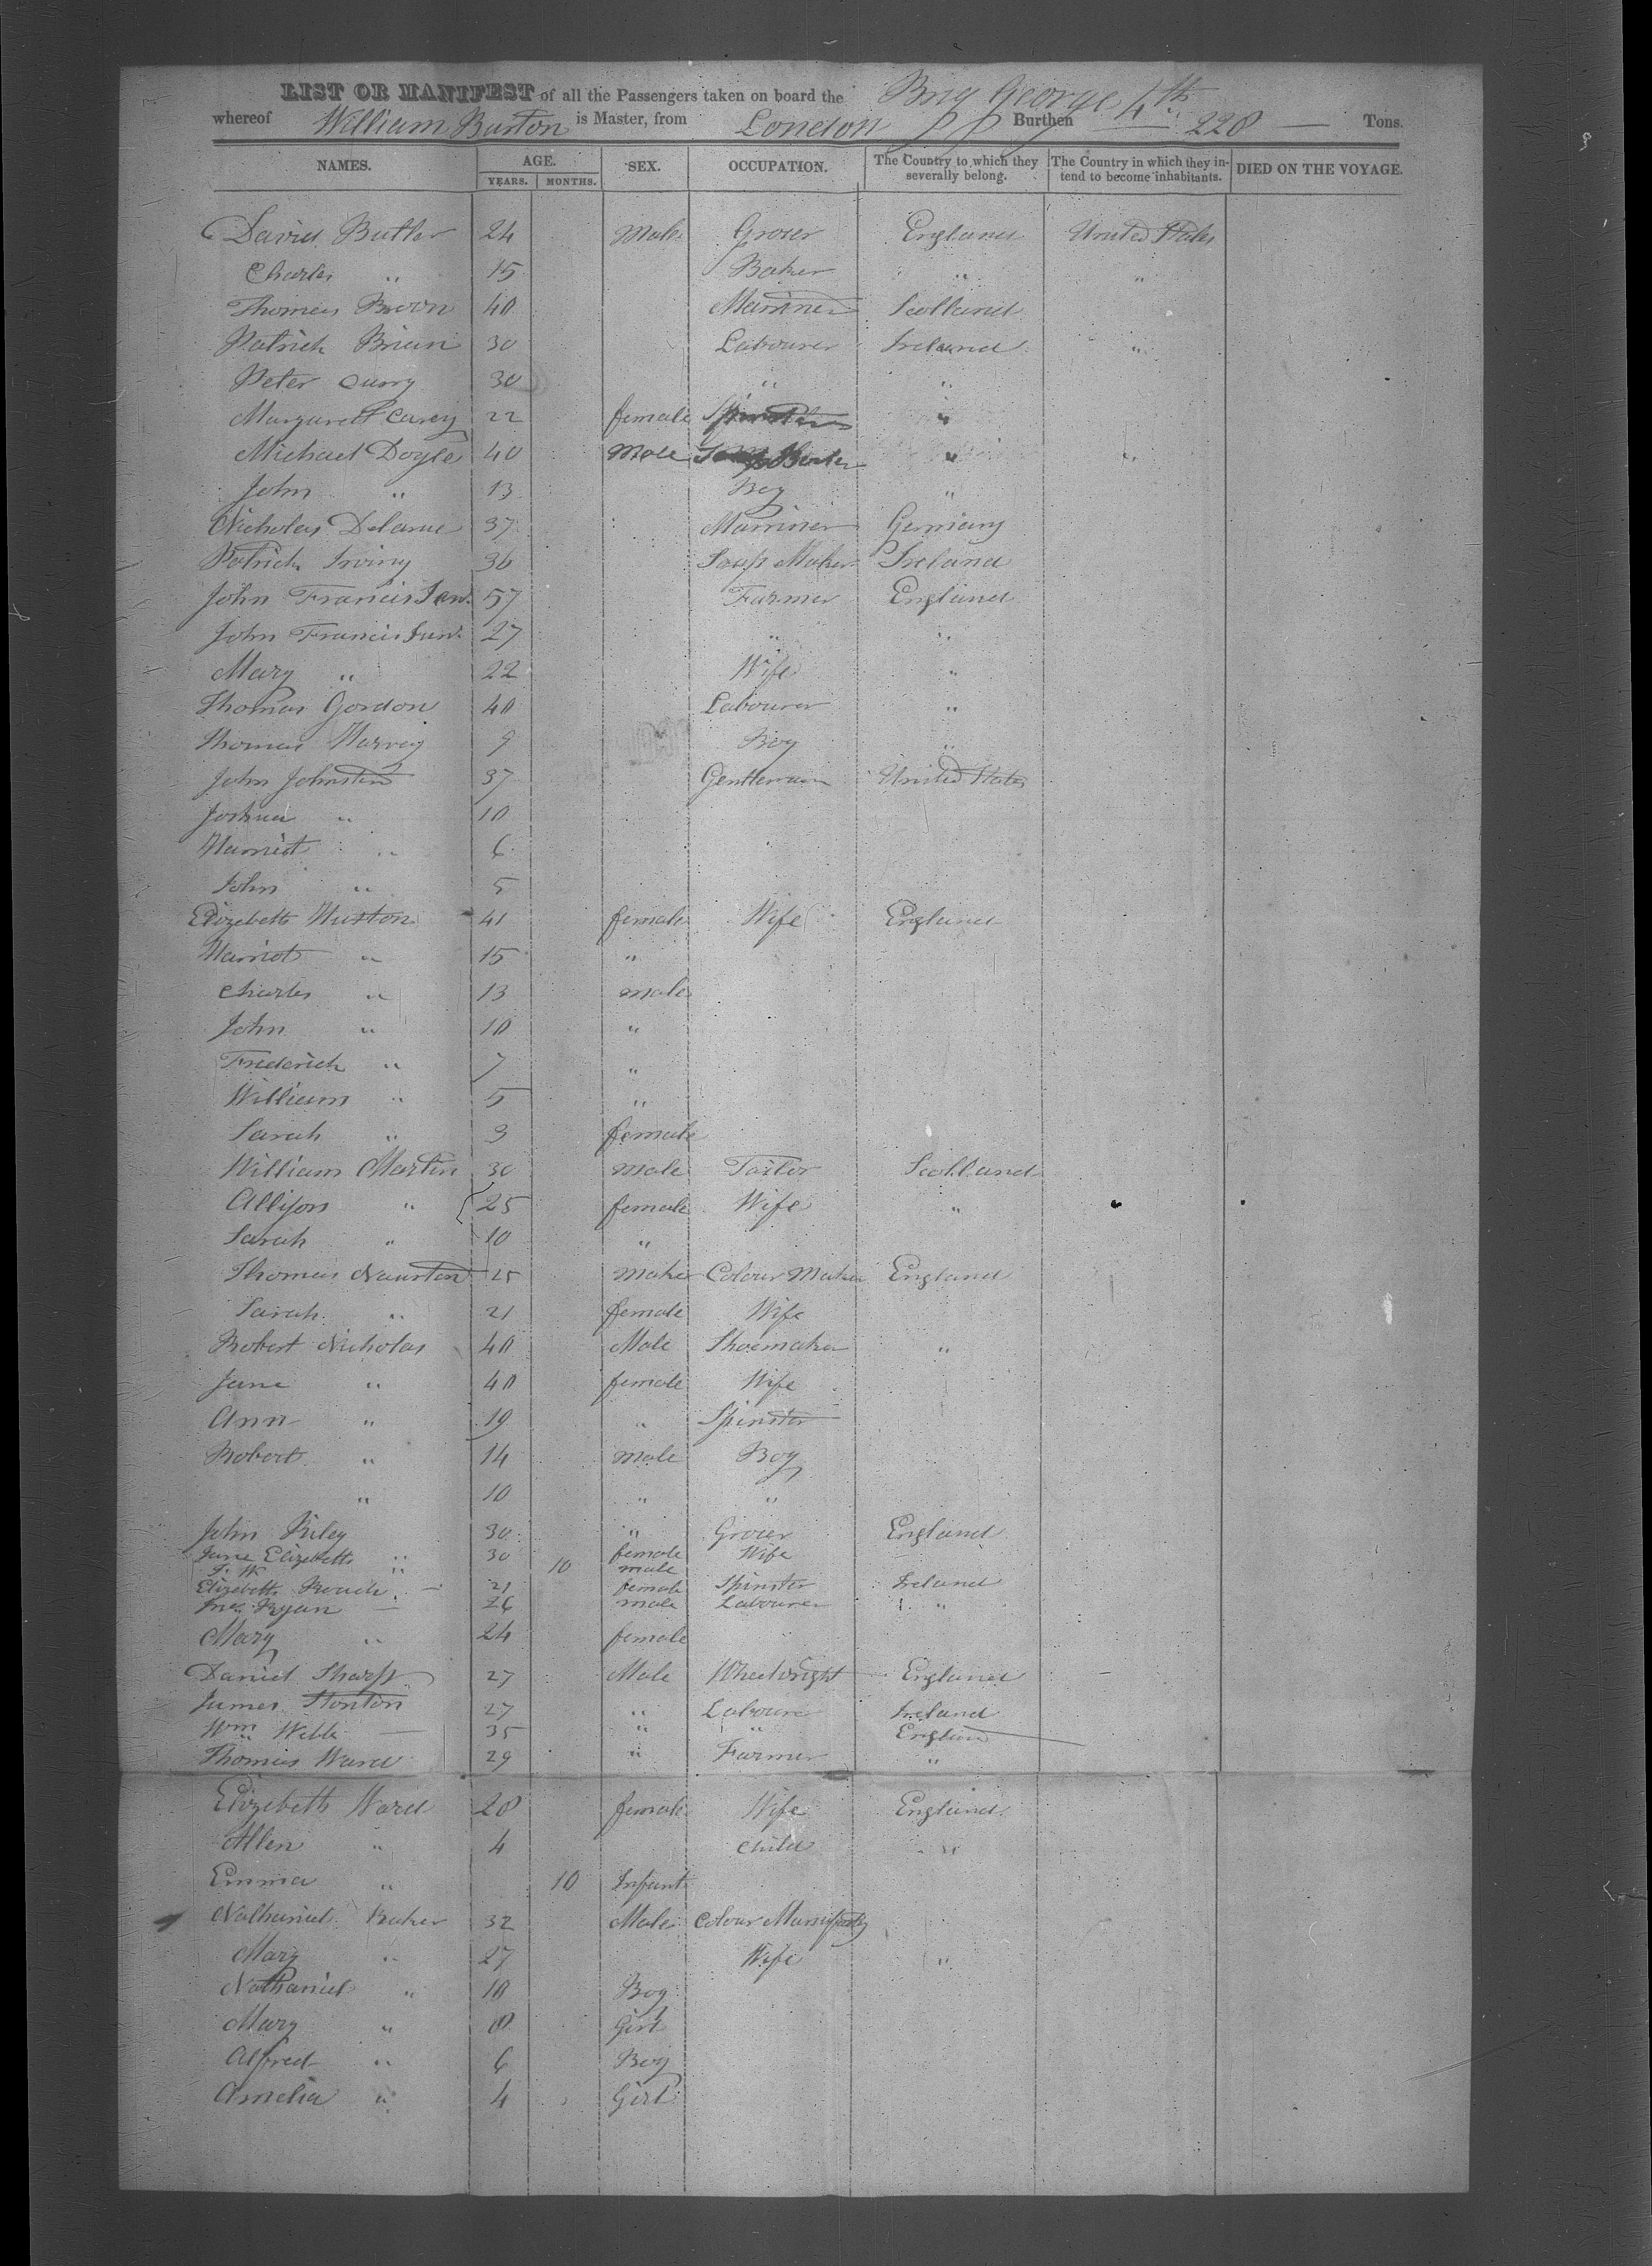 LIST OR MANIFEST of all the Passengers taken on board the Brig George 4th
whereof William Burton is Master, from London Burthen 228 Tons.
NAMES. AGE. SEX. OCCUPATION. The Country to which they severally belong. The Country in which they intend to become inhabitants. DIED ON THE VOYAGE.
YEARS. MONTHS.
David Butler 24 Male Grocer England United States
Charles " 15 Baker " "
Thomas Brown 40 Mariner Scotland
Patrick Brian 30 Labourer Ireland "
Peter Curry 30 " "
Margaret Carey 22 female Spinster "
Michael Doyle 40 Male " "
John " 13 Boy "
Nicholas Delarue 37 Marriner Germany
Patrick Irving 36 Soap Maker Ireland
John Francis Sen. 57 Farmer England
John Francis Jun. 27 " "
Mary " 22 Wife "
Thomas Gordon 40 Labourer "
Thomas Harvey 9 Boy "
John Johnston 37 Gentleman United States
Joshua " 10
Harriet " 6
John " 5
Elizebeth Huston 41 female Wife England
Harriot " 15 "
Charles " 13 male
John " 10 "
Frederick " 7 "
William " 5 "
Sarah " 3 female
William Martin 30 male Tailor Scotland
Allison " 25 female Wife "
Sarah " 10 "
Thomas 25 Colour Maker England
Sarah " 21 female Wife
Robert Nicholas 40 Male Shoemaker "
Jane " 40 female Wife
Ann " 19 " Spinster
Robert " 14 male Boy
" 10 " "
John Riley 30 " Grocer England
Jane Elizebeth " 30 female Wife
J. W. " 10 male
Elizebeth Roach — 21 female Spinster Ireland
Ryan — 26 male Labourer "
Mary " 24 female
Daniel Sharp 27 Male Wheelwright England
James Stonton 27 " Labourer Ireland
Wm Webb — 35 " " England
Thomas Ward 29 " Farmer "
Elizebeth Ward 28 female Wife England
Allen " 4 Child "
Emma " 10 Infant
Nathaniel Baker 32 Male Colour
Mary " 27 Wife "
Nathaniel " 10 Boy
Mary " 8 Girl
Alfred " 6 Boy
Amelia " 4 Girl